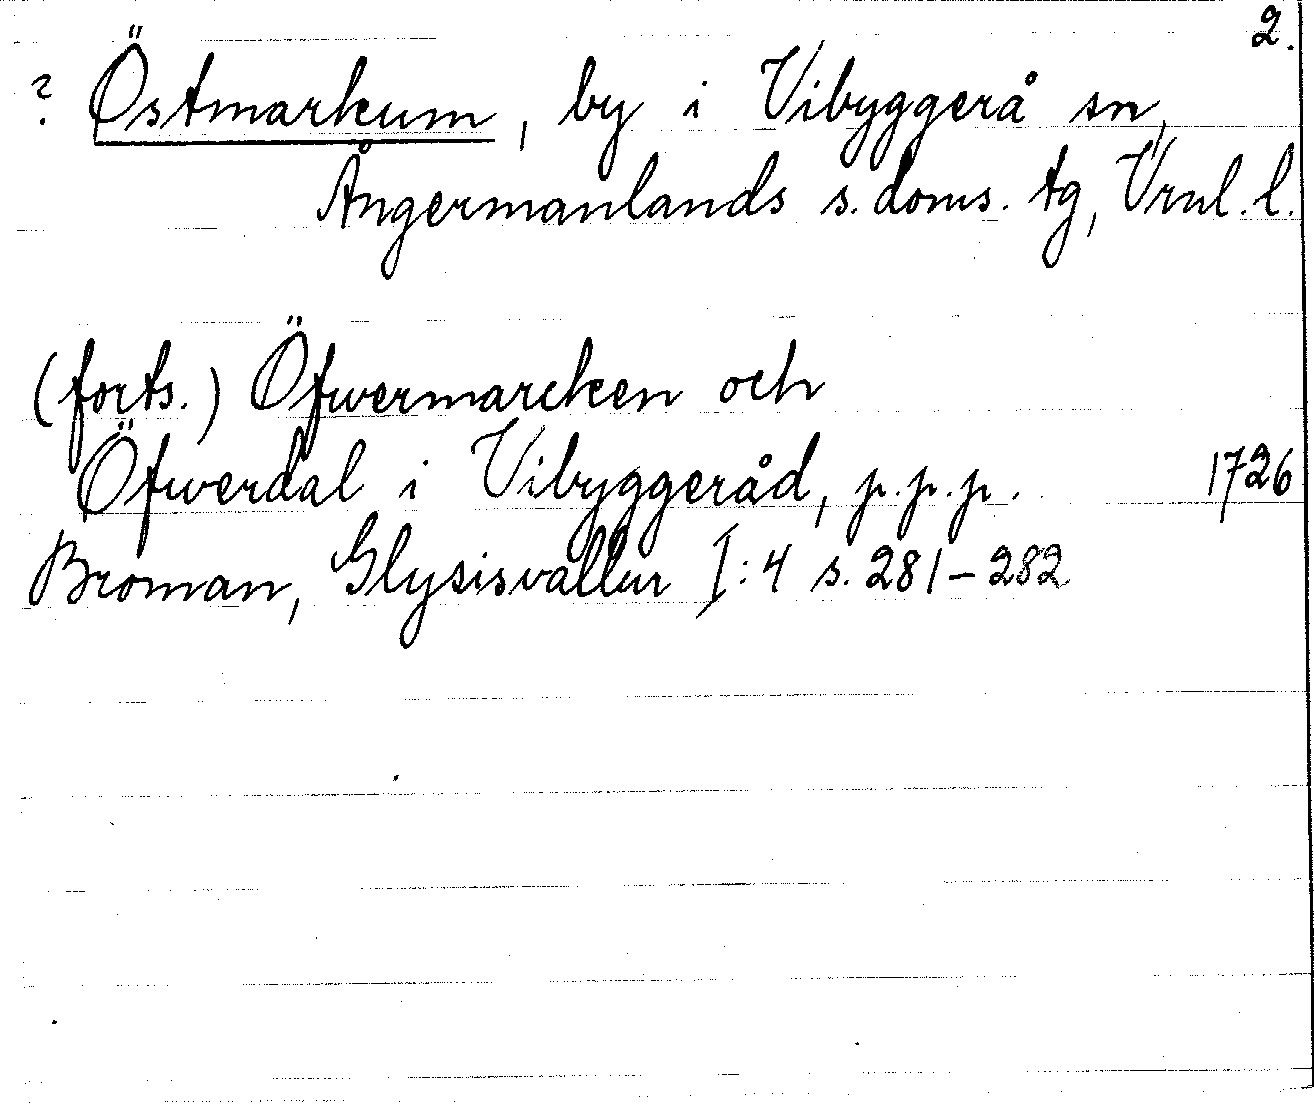 2.
? Östmarkum, by i Vibyggerå sn,
Ångermanlands s. doms. tg, Vrnl. l.
(forts.) Öfwermarcken och
Öfwerdal i Vibyggeråd, p.p.p. 1726
Broman, Glysisvallur I:4 s. 281-282